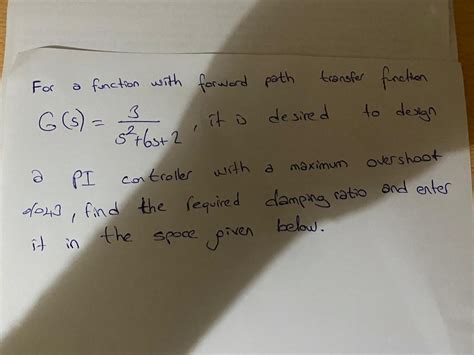 For a function with forward path transfer function
G(s) = 3 / s²+6s+2 , it is desired to design
a PI controller with a maximum overshoot
%43, find the required damping ratio and enter
it in the space given below.